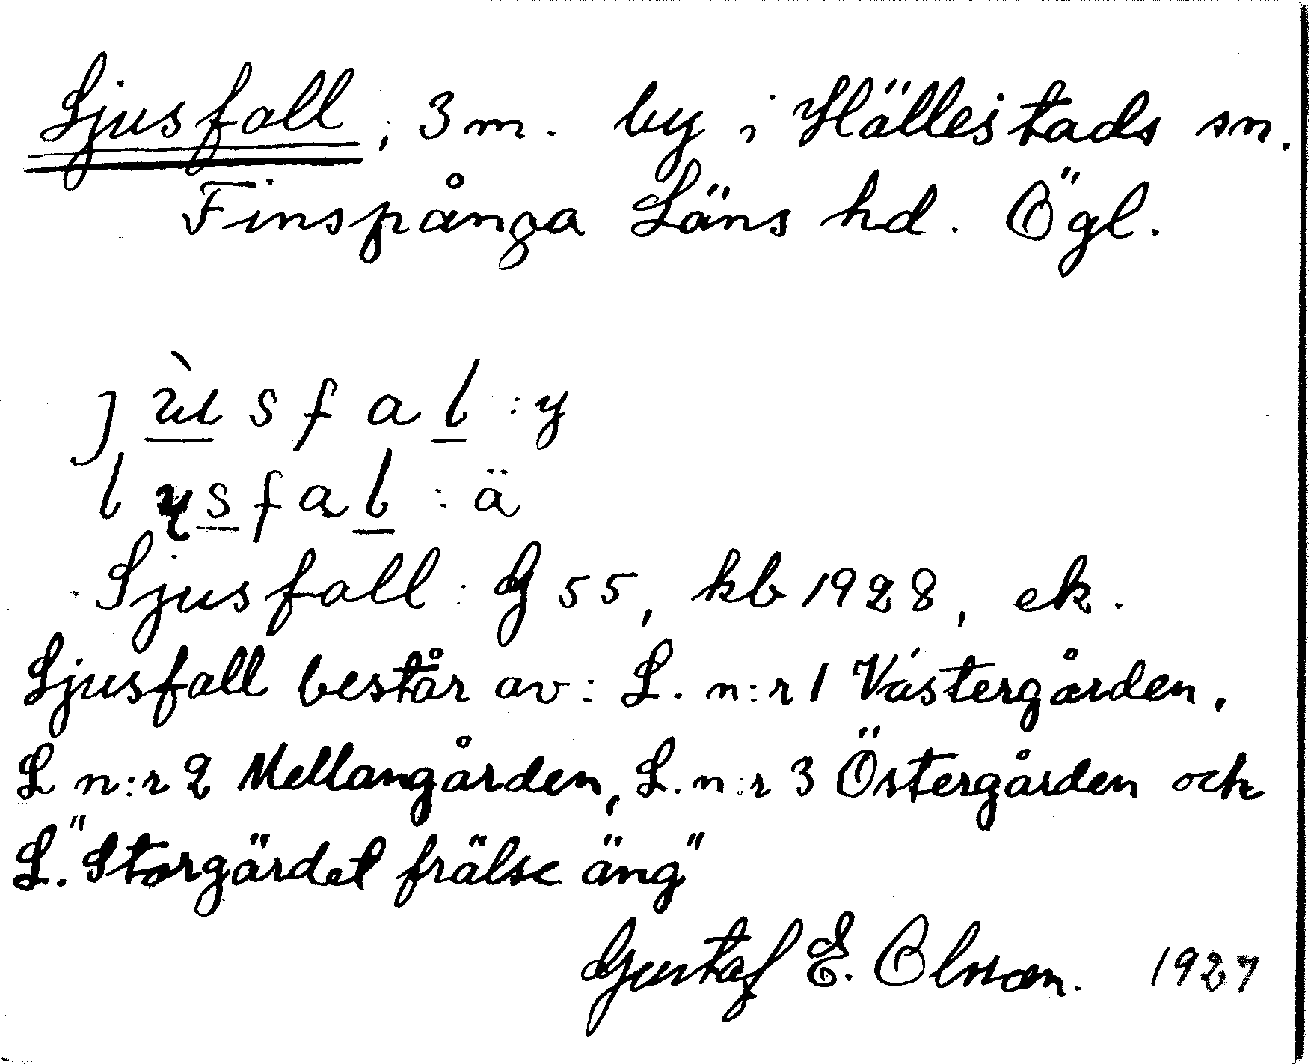 Ljusfall, 3 m. by i Hällestads sn.
Finspånga Läns hd. Ögl.
jùsfal : y
lysfal : ä
Ljusfall : G 55, kb 1928, ek.
Ljusfall består av: L. n:r 1 Västergården,
L n:r 2 Mellangården, L. n:r 3 Östergården och
L. "Storgärdet frälse äng"
Gustaf E. Olsson. 1927